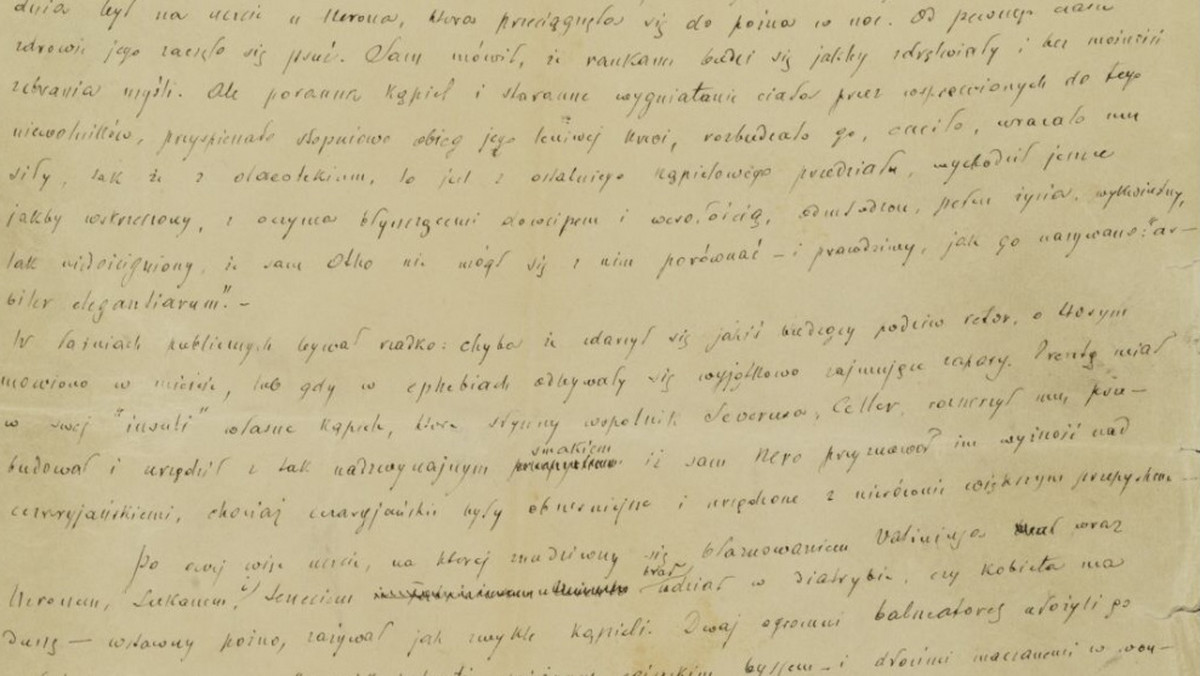 dnia był na uczcie u Nerona, która przeciągnęła się do późna w noc. Od pewnego czasu
zdrowie jego zaczęło się psuć. Sam mówił, iż rankami budzi się jakby zdrętwiały i bez możności
zebrania myśli. Ale poranna kąpiel i staranne wygniatanie ciała przez wsprawionych do tego
niewolników, przyspieszało stopniowo obieg jego leniwej krwi, rozbudzało go, cuciło, wracało mu
siły, tak że z olaeotekium, to jest z ostatniego kąpielowego przedziału, wychodził jeszcze
jakby wskrzeszony, z oczyma błyszczącemi dowcipem i wesołością, odmłodzon, pełen życia, wykwintny,
tak niedościgniony, iż sam Otho nie mógł się z nim porównać – i prawdziwy, jak go nazywano: "ar-
biter elegantiarum". –
W łaźniach publicznych bywał rzadko: chyba iż zdarzył się jakiś budzący podziw retor, o którym
mówiono w mieście, lub gdy w ephebiach odbywały się wyjątkowo zajmujące zapasy. Zresztą miał
w swej "insuli" własne kąpiele, które słynny wspólnik Severusa, Celler, rozszerzył mu, prze-
budował i urządził z tak nadzwyczajnym smakiem iż sam Nero przyznawał im wyższość nad
cezaryjańskiemi, chociaż cezaryjańskie były obszerniejsze i urządzone z nierównie większym przepychem –
Po owej więc uczcie, na której znudziwszy się błaznowaniem Vatiniusa wraz
Neronem, Lukanem, i Senecionem brał udział w diatrybie, czy kobieta ma
duszę — wstawszy późno, zażywał jak zwykle kąpieli. Dwaj ogromni balneatores złożyli go
byssem – i dłońmi maczanemi w won-